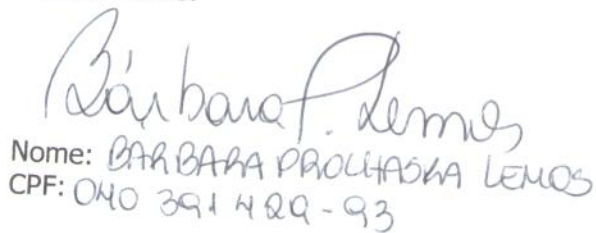 Bárbara P. Lemos
Nome: BARBARA PROCHASKA LEMOS
CPF: 040 391 429-93